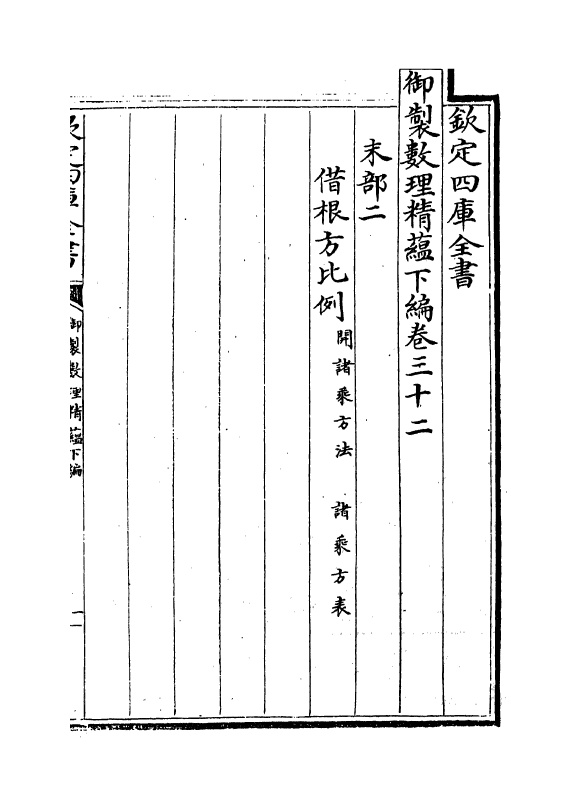 欽定四庫全書
御製數理精蘊下編卷三十二
末部二
借根方比例 開諸乘方法 諸乘方表
欽定四庫全書 御製數理精蘊下編